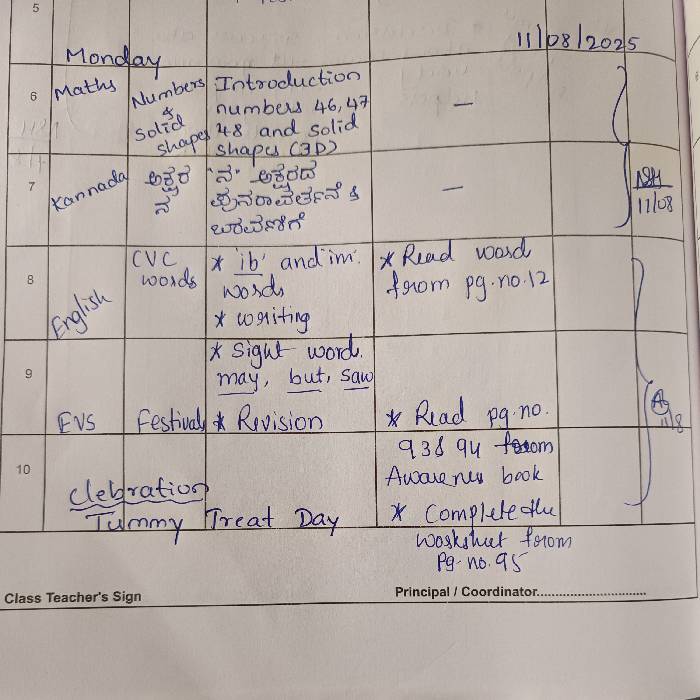 5
Monday 11/08/2025
6 Maths Numbers & Solid shapes Introduction numbers 46, 47 48 and solid shapes (3D) —
7 Kannada ಅಕ್ಷರ ನ "ನ" ಅಕ್ಷರದ ಪುನರಾವರ್ತನೆ & ಬರವಣಿಗೆ —
11/08
8 English CVC words * 'ib' and 'im' words * writing * Read word from pg.no.12
9 * Sight word. may, but, saw
EVS Festivals * Revision * Read pg.no. 93& 94 from Awarenes book
11/8
10 Clebration * Complete the worksheet from Pg.no.95
Tummy Treat Day
Class Teacher's Sign Principal / Coordinator..............................